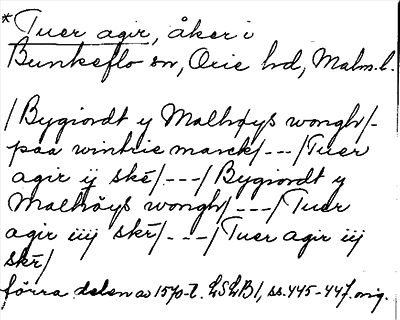 *Tuer agir, åker i
Bunkeflo sn, Oxie hd, Malm. l.
/Bygiordt y Malhøys wongh/-
paa wintrie marck/---/Tuer
agir ij ske/---/Bygiordt y
Malhøys wongh/---/Tuer
agir iiij skr/---/Tuer agir iij
skr/
förra delen av 1570-t. LSLB 1, ss. 445-447. orig.